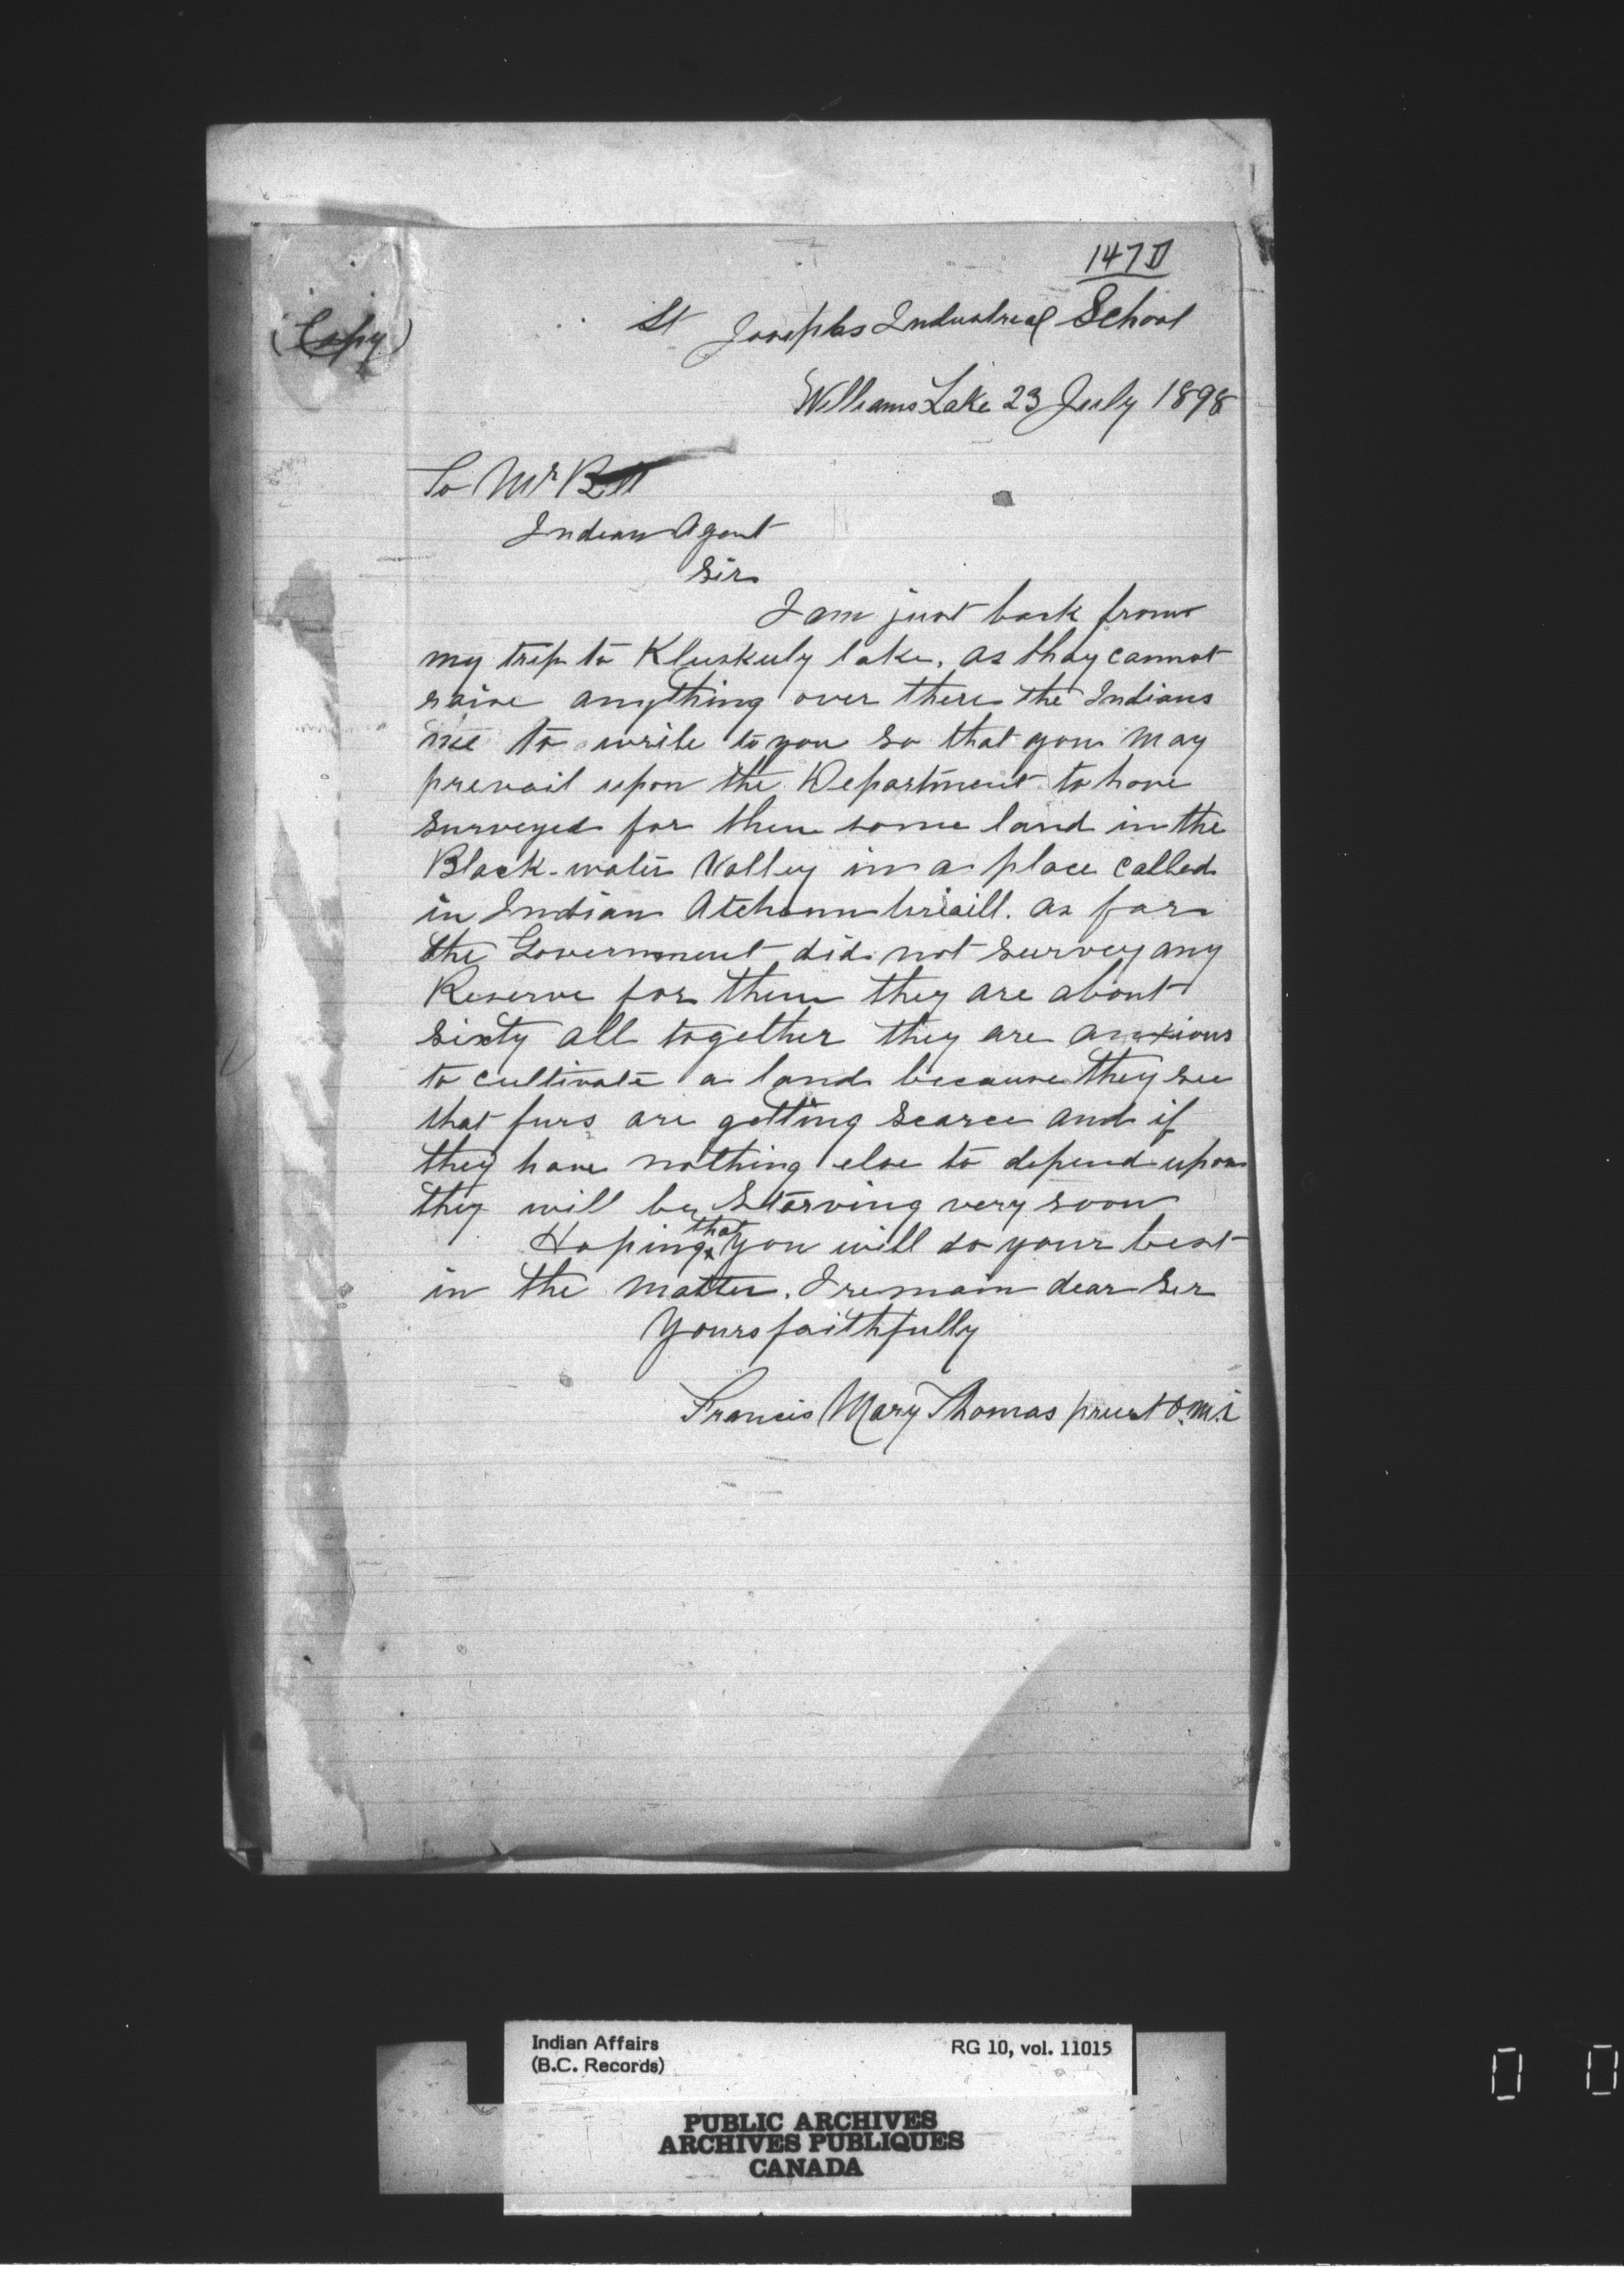 147D
(Copy)
St Josephs Industrial School
Williams Lake 23 July 1898
To Mr Bell
Indian Agent
Sir
I am just back from
my trip to Kluskuly lake. as thay cannot
raise anything over there the Indians
me to write to you so that you may
prevail upon the Department to have
surveyed for them some land in the
Black-water Valley in a place called
in Indian as far
the Government did not survey any
Reserve for them they are about
sixty all together they are anxious
to cultivate a land because they see
that furs are getting scarce and if
they have nothing else to depend upon
they will be starving very soon
Hoping that you will do your best
in the matter. I remain dear Sir
Yours faithfully
Francis Mary Thomas priest o.m.i
Indian Affairs RG 10, vol. 11015
(B.C. Records)
PUBLIC ARCHIVES
ARCHIVES PUBLIQUES
CANADA